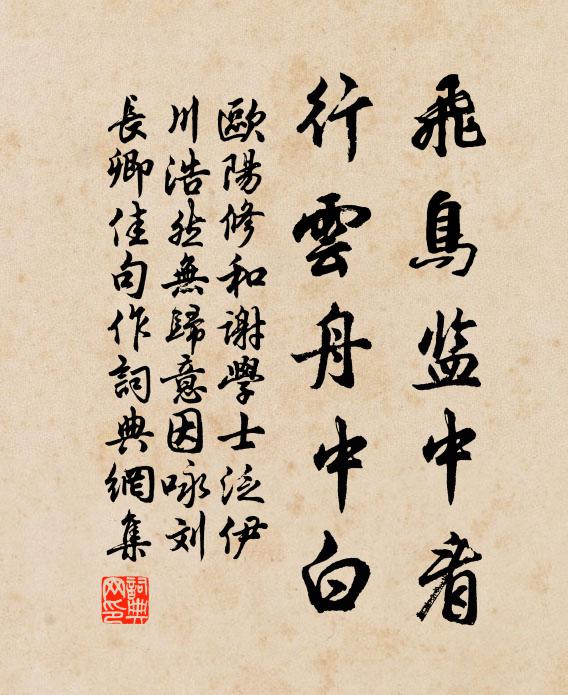 飛鳥监中看
行雲舟中白
歐陽修和謝學士泛伊
川浩然無歸意因咏刘
長卿佳句作詞典網集
詞典網印